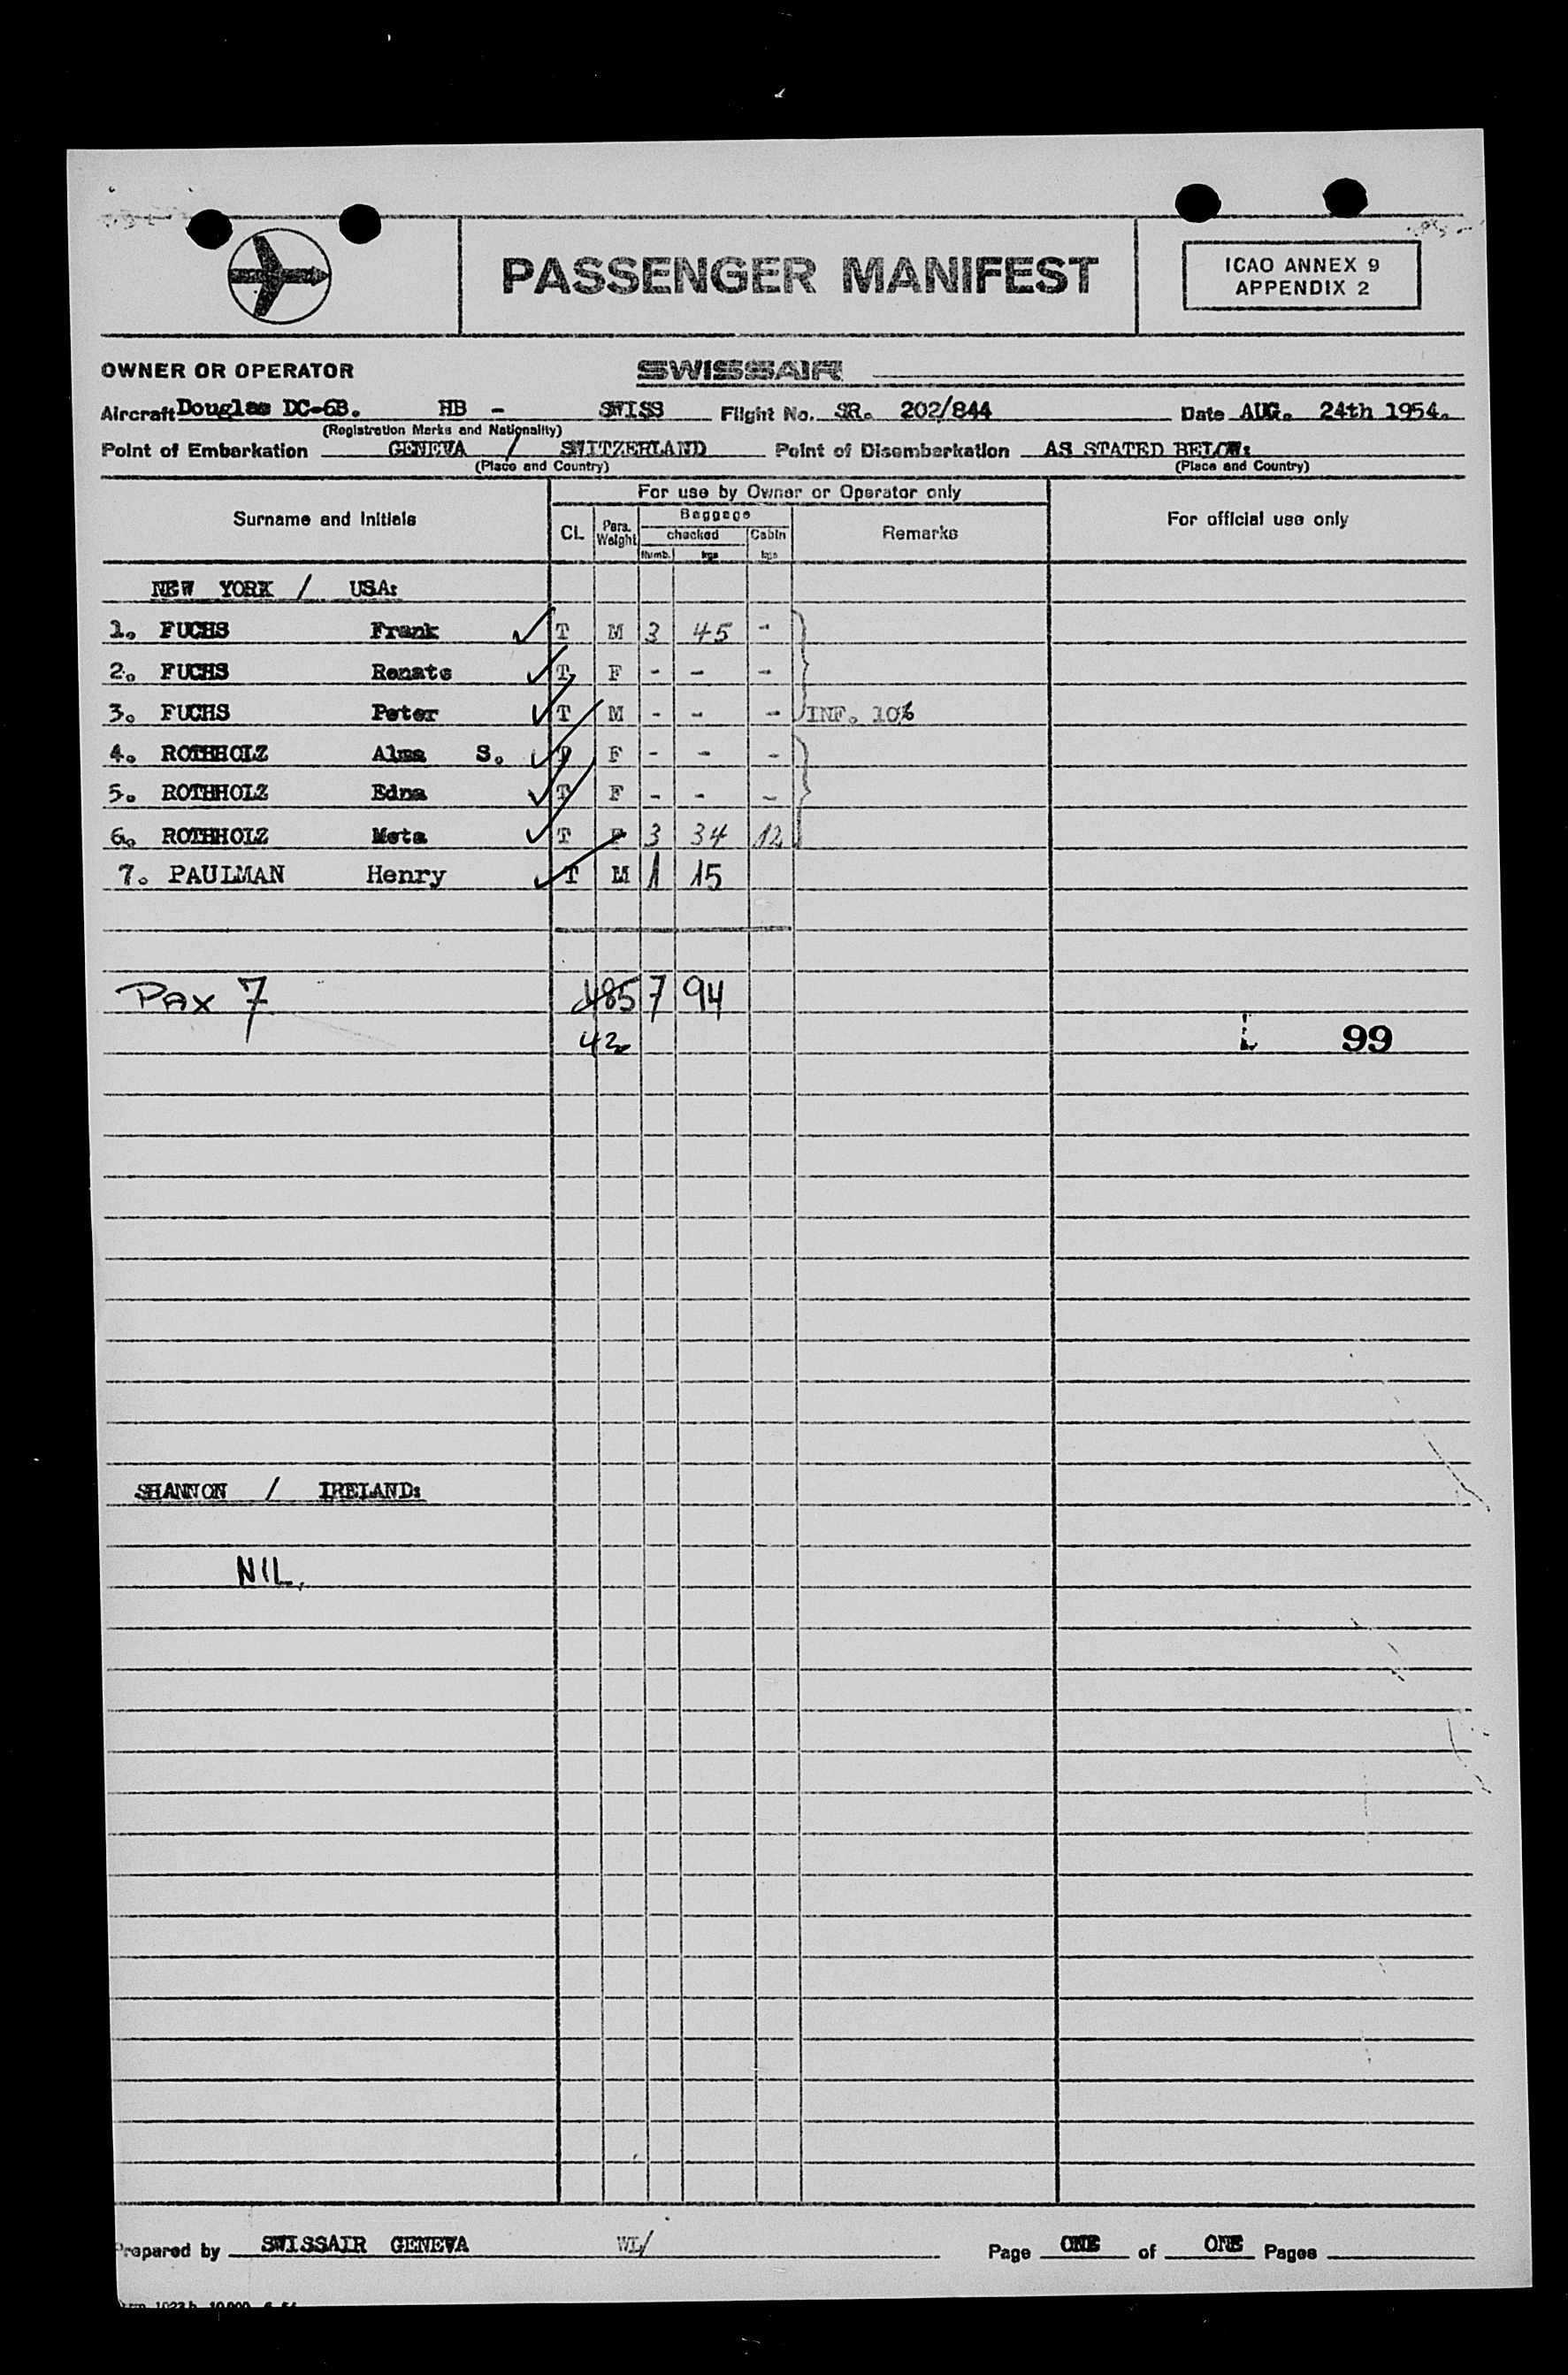 PASSENGER MANIFEST
ICAO ANNEX 9
APPENDIX 2
OWNER OR OPERATOR SWISSAIR
Aircraft Douglas DC-6B. HB - SWISS Flight No. SR. 202/844 Date AUG. 24th 1954.
(Registration Marks and Nationality)
Point of Embarkation GENEVA / SWITZERLAND Point of Disembarkation AS STATED BELOW:
(Place and Country) (Place and Country)
For use by Owner or Operator only
Surname and Initials CL. Pers. Weight Baggage Remarks For official use only
checked Cabin
Numb. kgs kgs
NEW YORK / USA:
1. FUCHS Frank T M 3 45 -
2. FUCHS Renate T F - - -
3. FUCHS Peter T M - - - INF. 10%
4. ROTHHOLZ Alma S. T F - - -
5. ROTHHOLZ Edna T F - - -
6. ROTHHOLZ Meta T F 3 34 12
7. PAULMAN Henry T M 1 15
PAX 7 485 7 94
42 99
SHANNON / IRELAND:
NIL.
Prepared by SWISSAIR GENEVA WL/ Page ONE of ONE Pages
1023 b 10.000 6.54